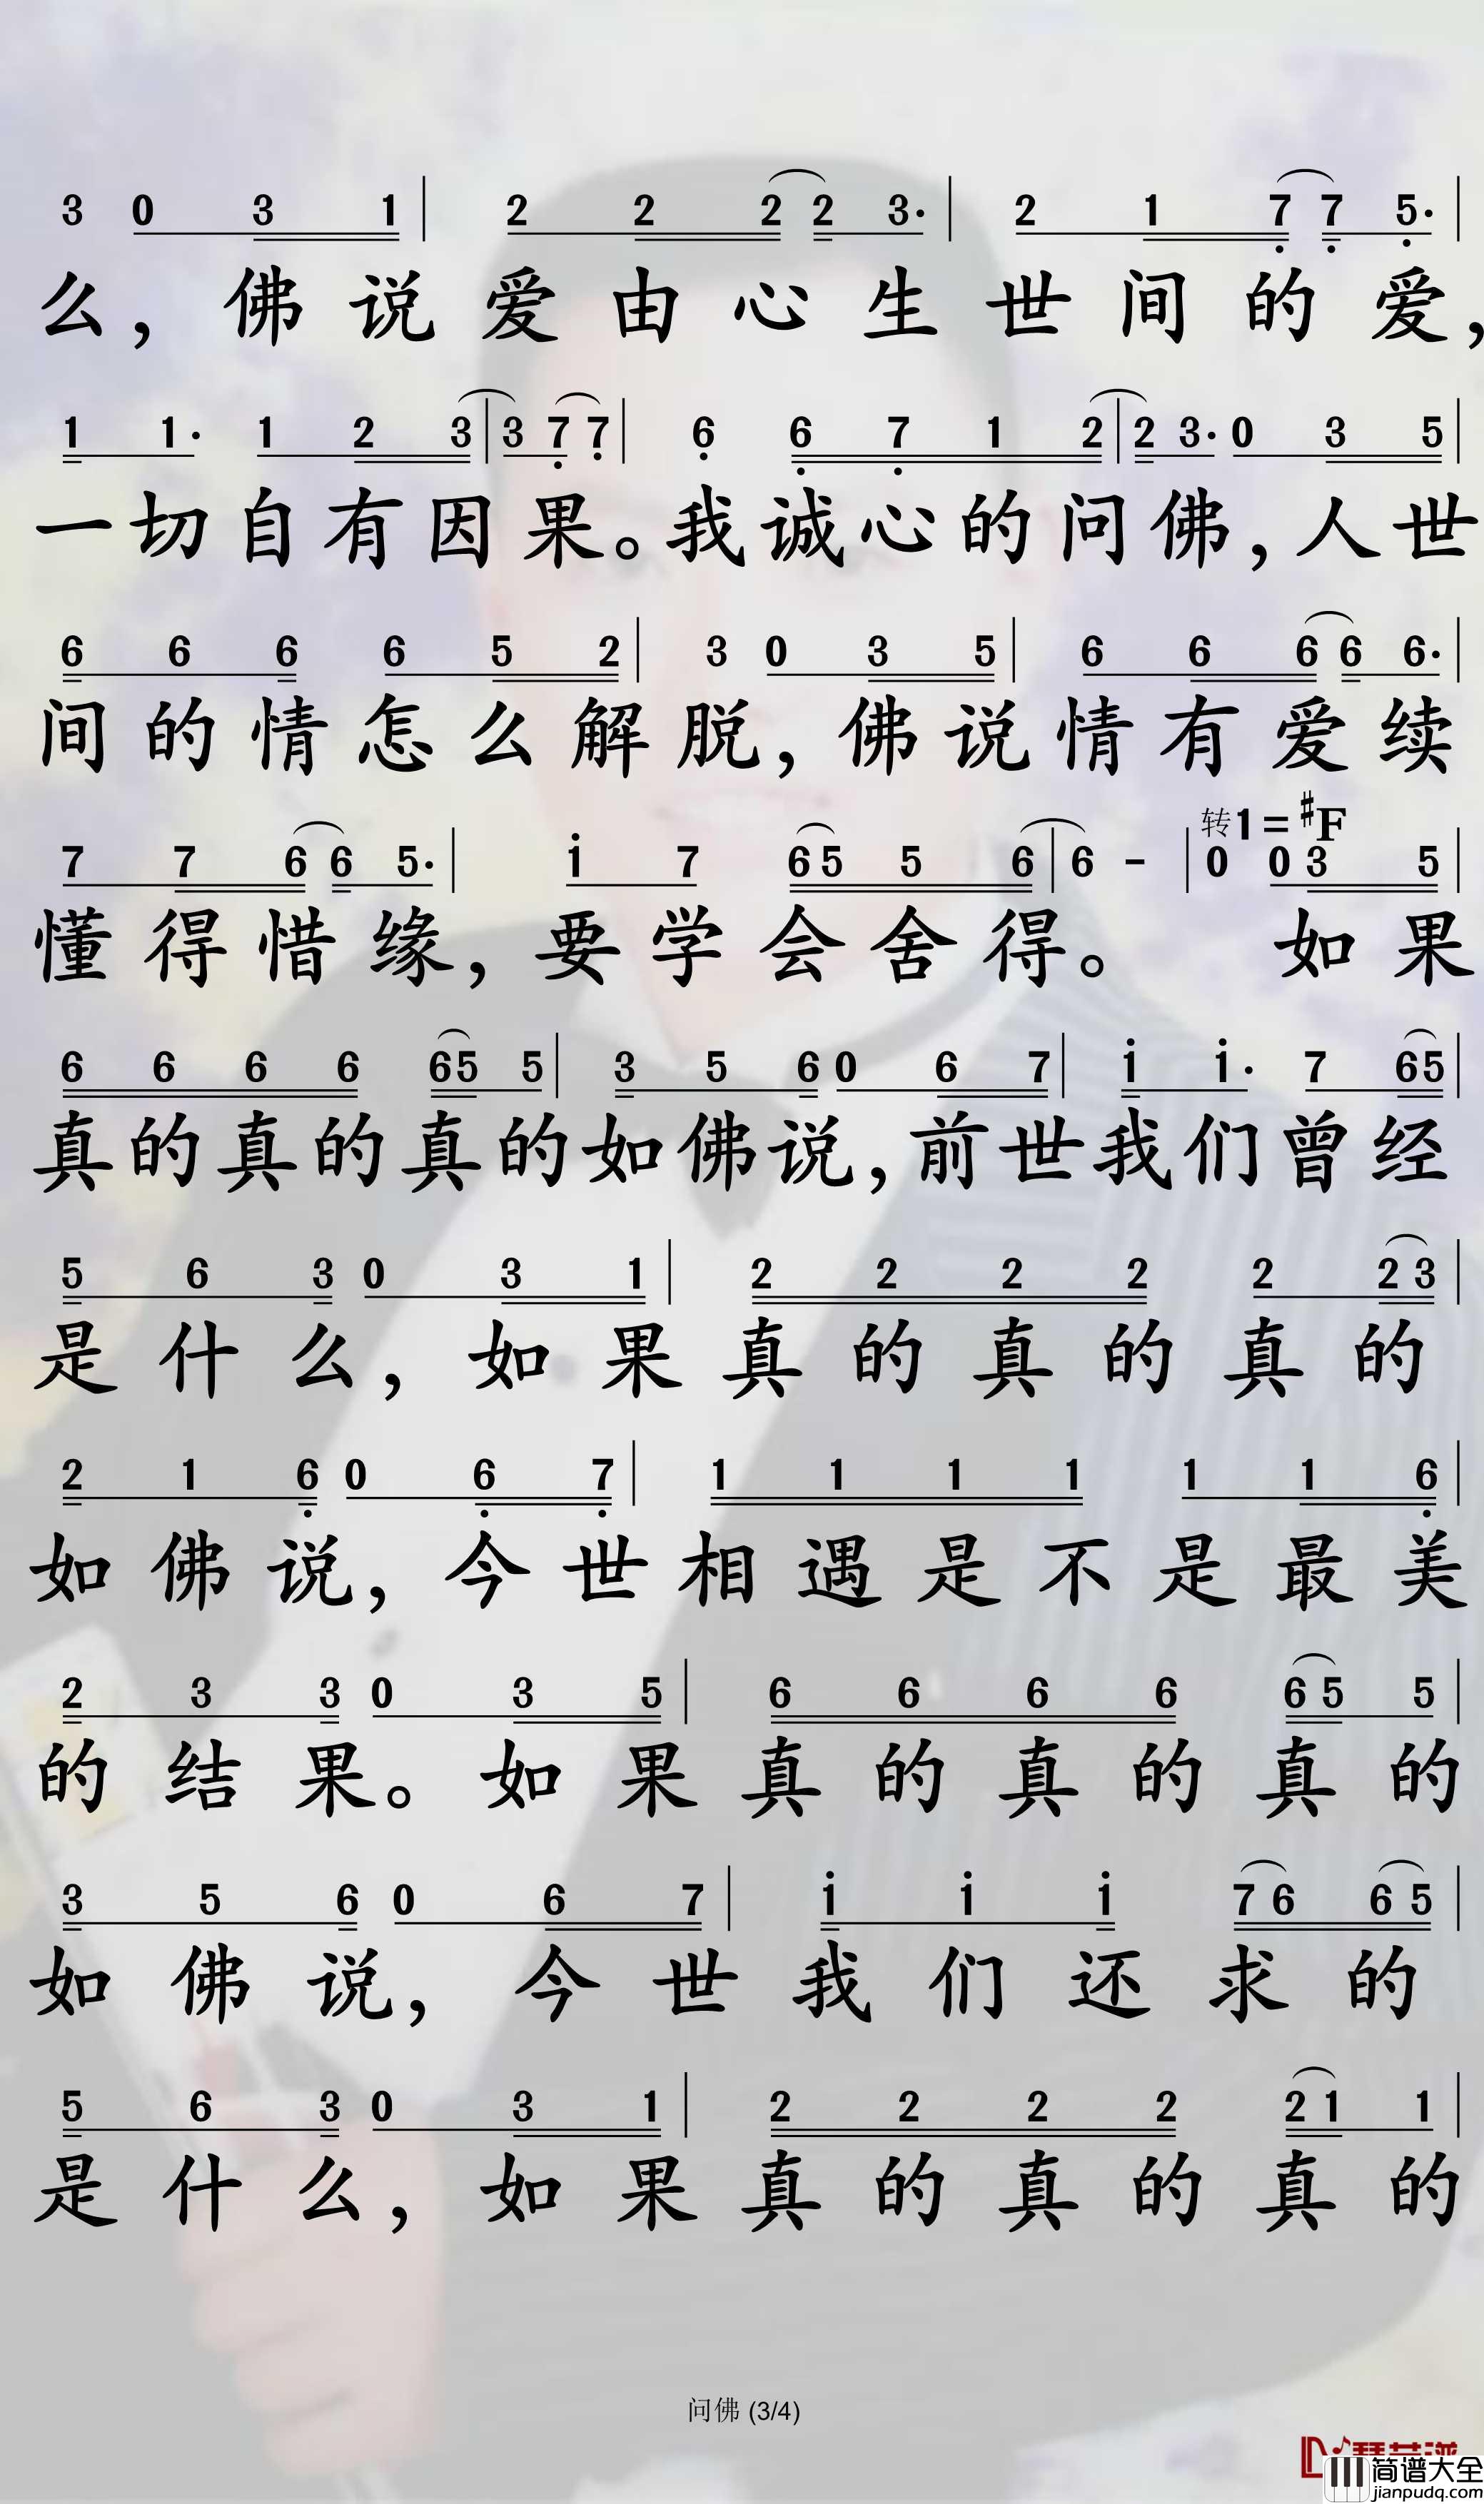 3 0 3 1 | 2 2 2 2 3· | 2 1 7 7 5· |
么，佛说爱由心生世间的爱，
1 1· 1 2 3 | 3 7 7 | 6 6 7 1 2 | 2 3· 0 3 5 |
一切自有因果。我诚心的问佛，人世
6 6 6 6 5 2 | 3 0 3 5 | 6 6 6 6 6· |
间的情怎么解脱，佛说情有爱续
转1=#F
7 7 6 6 5· | i 7 6 5 5 6 | 6 - | 0 0 3 5 |
懂得惜缘，要学会舍得。 如果
6 6 6 6 6 5 5 | 3 5 6 0 6 7 | i i· 7 6 5 |
真的真的真的如佛说，前世我们曾经
5 6 3 0 3 1 | 2 2 2 2 2 2 3 |
是什么，如果真的真的真的
2 1 6 0 6 7 | 1 1 1 1 1 1 6 |
如佛说，今世相遇是不是最美
2 3 3 0 3 5 | 6 6 6 6 6 5 5 |
的结果。如果真的真的真的
3 5 6 0 6 7 | i i i 7 6 6 5 |
如佛说，今世我们还求的
5 6 3 0 3 1 | 2 2 2 2 2 1 1 |
是什么，如果真的真的真的
问佛 (3/4)
简谱大全
jianpudq.com